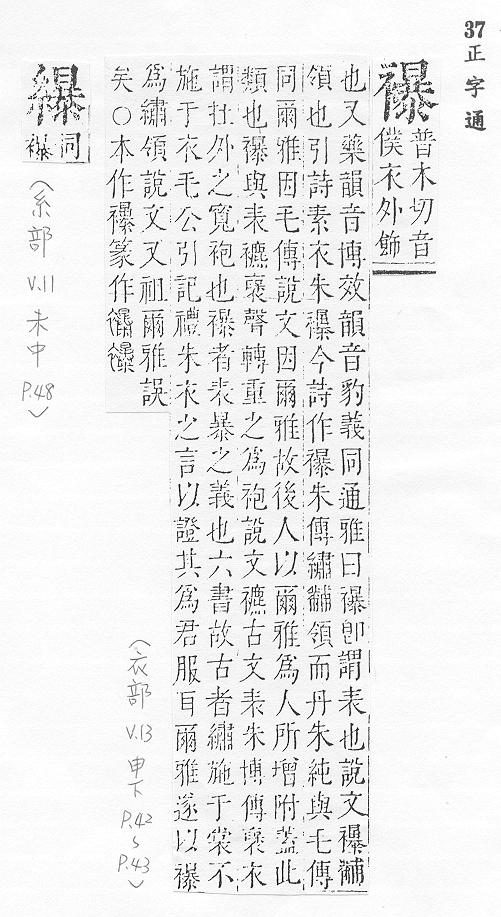 37正字通
襮
普木切音
僕衣外飾
也又藥韻音博效韻音豹義同通雅曰襮卽謂表也說文襮黼
領也引詩素衣朱襮今詩作襮朱傳繡黼領而丹朱純與毛傳
同爾雅因毛傳說文因爾雅故後人以爾雅爲人所增附蓋此
類也襮與表襬襃聲轉重之爲袍說文襬古文表朱博傳襃衣
謂社外之寬袍也襮者表暴之義也六書故古者繡施于裳不
施于衣毛公引記禮朱衣之言以證其爲君服耳爾雅遂以襮
爲繡領說文又祖爾雅誤
矣○本作襮篆作
纀
同
襮
(糸部 V.11 未中 P.48)
(衣部 V.13 申下 P.42~P.43)